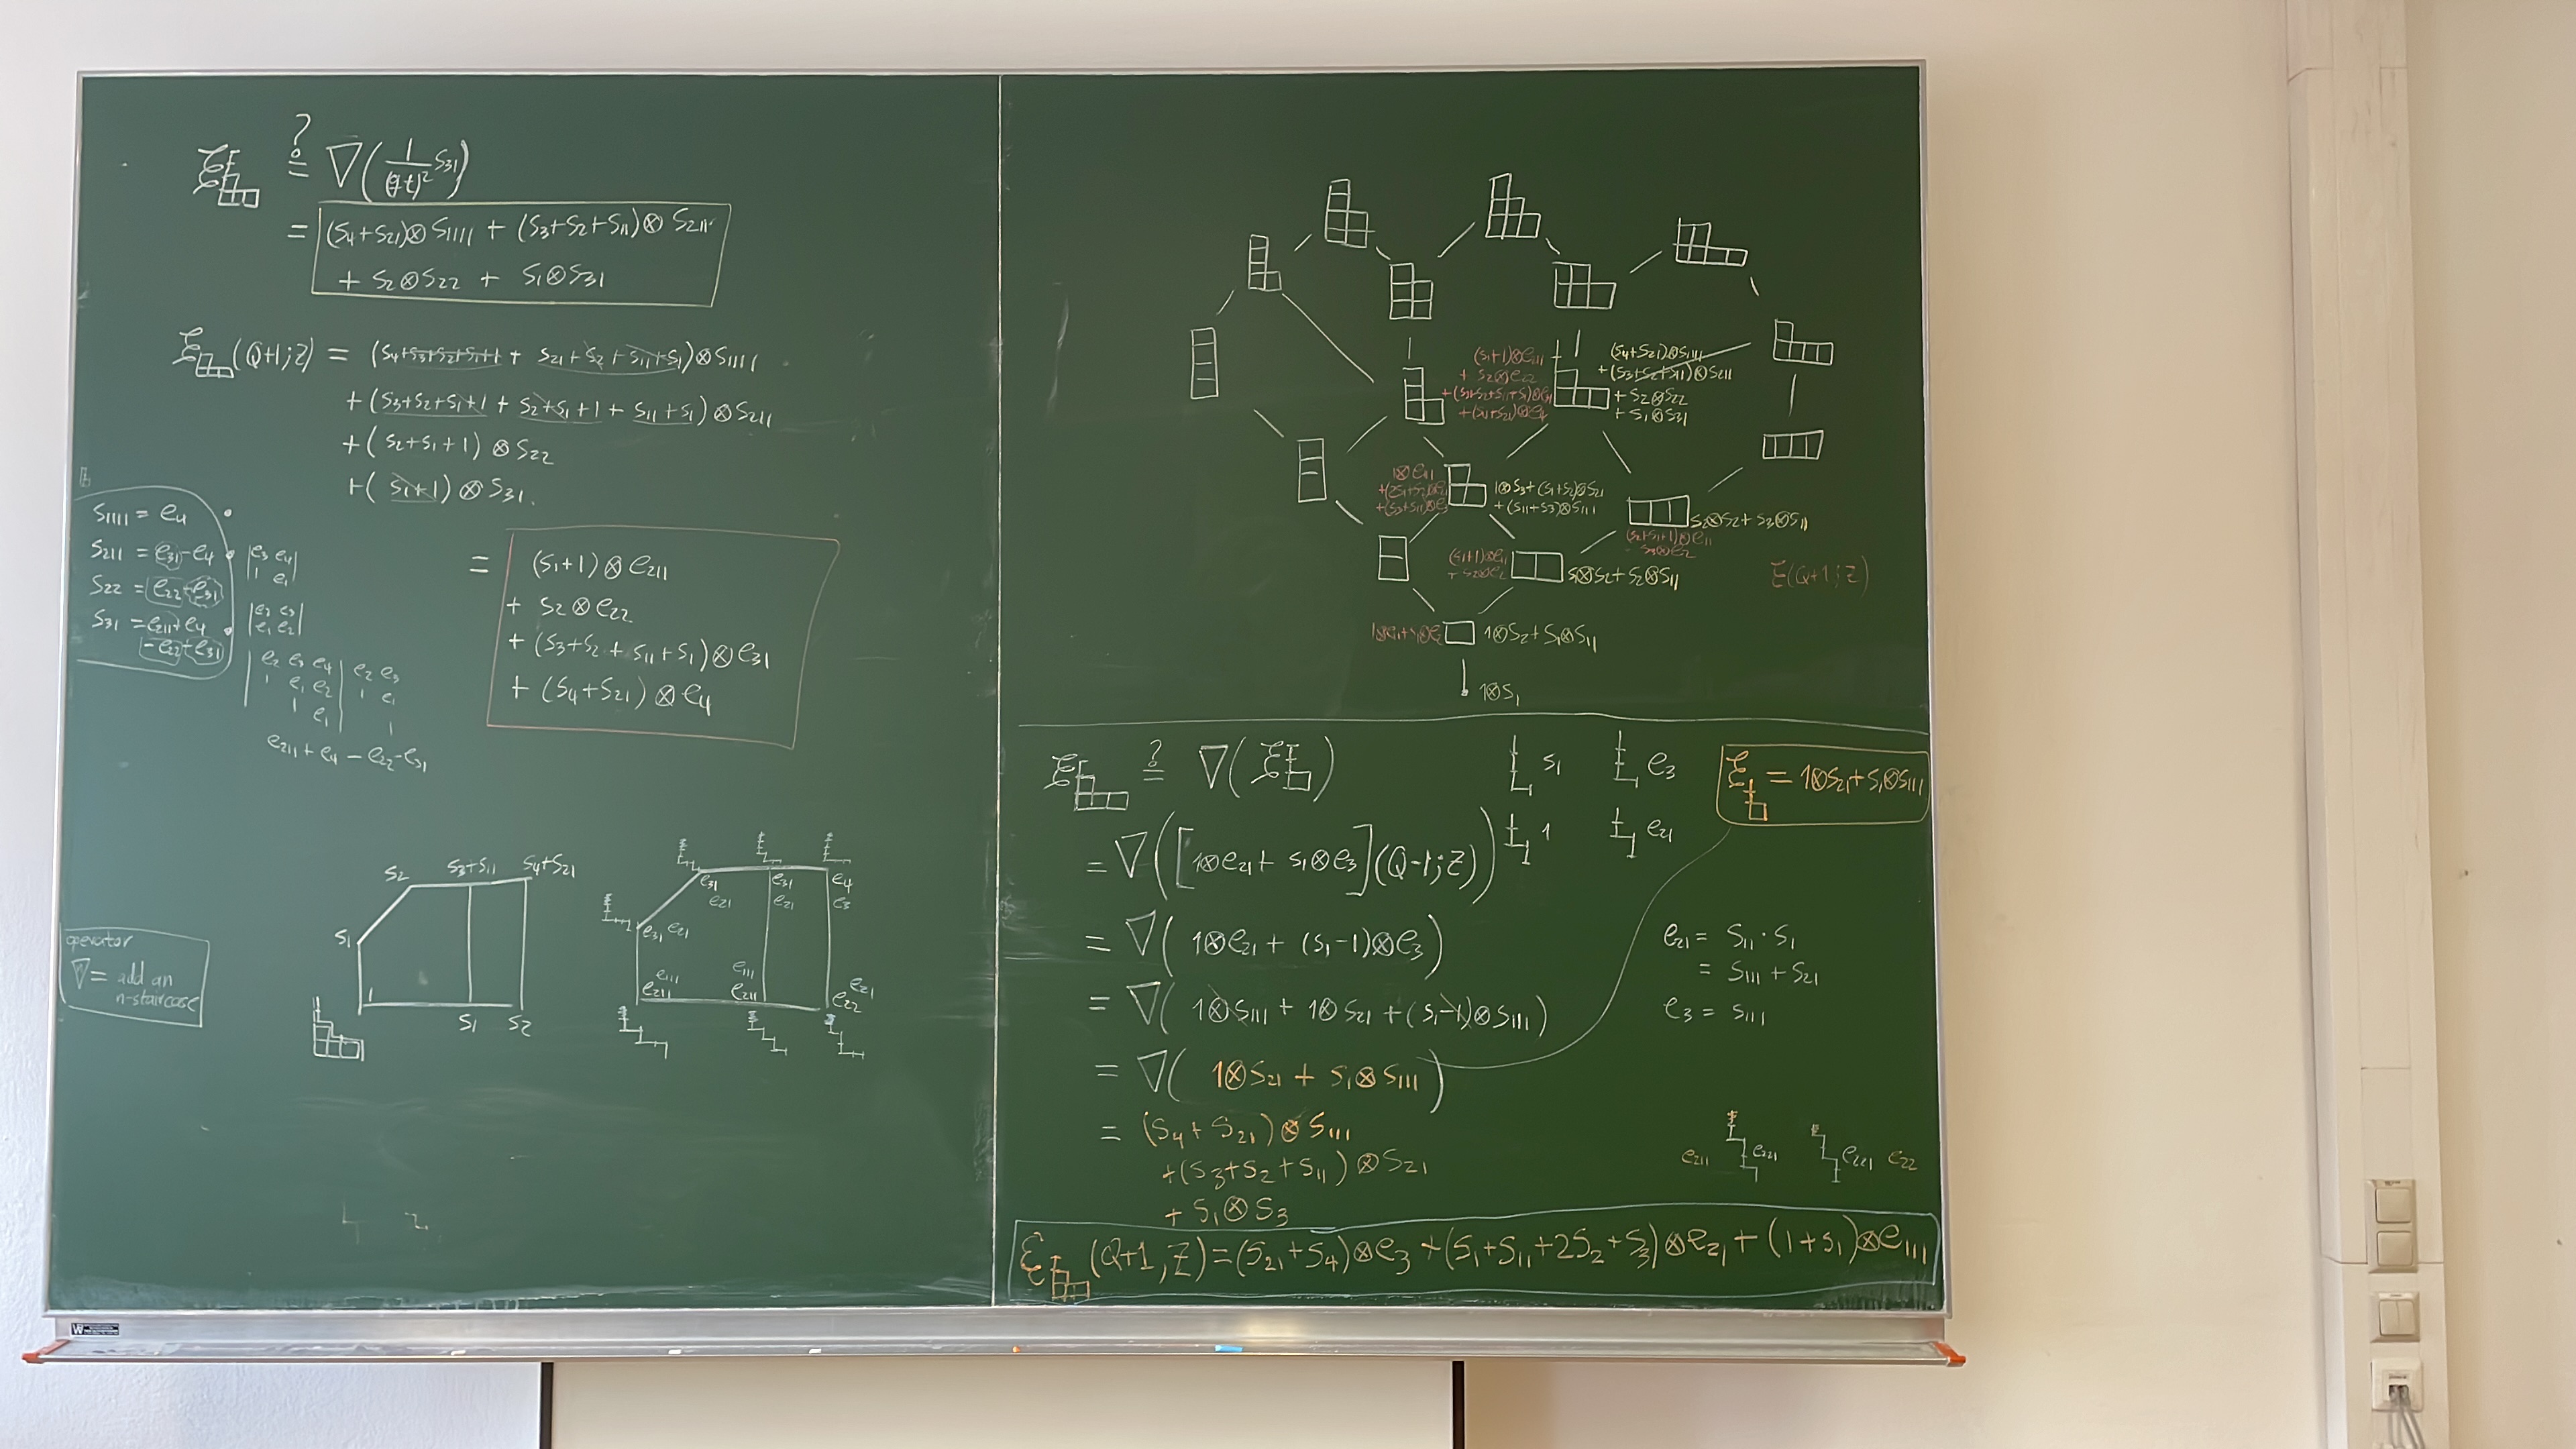 ℰ ≟ ∇(1/(qt)² s₃₁)
= (s₄+s₂₁)⊗s₁₁₁₁ + (s₃+s₂+s₁₁)⊗s₂₁₁
+ s₂⊗s₂₂ + s₁⊗s₃₁
ℰ(Q+1;Z) = (s₄+s₃+s₂+s₁+1 + s₂₁+s₂+s₁₁+s₁)⊗s₁₁₁₁
+(s₃+s₂+s₁+1 + s₂+s₁+1 + s₁₁+s₁)⊗s₂₁₁
+(s₂+s₁+1)⊗s₂₂
+(s₁+1)⊗s₃₁.
s₁₁₁₁ = e₄
s₂₁₁ = e₃₁-e₄
s₂₂ = e₂₂-e₃₁
s₃₁ = e₂₁₁+e₄
-e₂₂-e₃₁
|e₃ e₄|
|1 e₁|
|e₂ e₃|
|e₁ e₂|
e₂ e₃ e₄ e₂ e₃
1 e₁ e₂ 1 e₁
1 e₁ 1
e₂₁₁+e₄-e₂₂-e₃₁
= (s₁+1)⊗e₂₁₁
+ s₂⊗e₂₂
+ (s₃+s₂+s₁₁+s₁)⊗e₃₁
+ (s₄+s₂₁)⊗e₄
operator
∇= add an
n-staircase
s₂ s₃+s₁₁ s₄+s₂₁
s₁
1
s₁ s₂
e₃₁ e₃₁ e₄
e₂₁ e₂₁ e₃
e₃₁ e₂₁
e₁₁₁ e₁₁₁ e₂₁
e₂₁₁ e₂₁₁ e₂₂
(s₁+1)⊗e₂₁₁
+ s₂⊗e₂₂
+(s₃+s₂+s₁₁+s₁)⊗e₃₁
+(s₄+s₂₁)⊗e₄
(s₄+s₂₁)⊗s₁₁₁₁
+(s₃+s₂+s₁₁)⊗s₂₁₁
+ s₂⊗s₂₂
+ s₁⊗s₃₁
1⊗s₃+(s₁+s₂)⊗s₂₁
+(s₁₁+s₃)⊗s₁₁₁
s₂⊗s₂+s₃⊗s₁₁
(s₂+s₁+1)⊗e₁₁
(s₁+1)⊗e₁₁
+ s₂⊗e₂
s₁⊗s₂+s₂⊗s₁₁
ℰ(Q+1;Z)
1⊗s₂+s₁⊗s₁₁
1⊗s₁
ℰ ≟ ∇(ℰ)
s₁ e₃
1 e₂₁
ℰ = 1⊗s₂₁+s₁⊗s₁₁₁
= ∇([1⊗e₂₁+ s₁⊗e₃](Q-1;Z))
= ∇(1⊗e₂₁+ (s₁-1)⊗e₃)
= ∇(1⊗s₁₁₁+ 1⊗s₂₁+(s₁-1)⊗s₁₁₁)
= ∇(1⊗s₂₁+ s₁⊗s₁₁₁)
= (s₄+s₂₁)⊗s₁₁₁
+(s₃+s₂+s₁₁)⊗s₂₁
+ s₁⊗s₃
e₂₁= s₁₁·s₁
= s₁₁₁+s₂₁
e₃ = s₁₁₁
e₂₁₁ e₂₂₁ e₂₂₁ e₂₂
ℰ(Q+1,Z)=(s₂₁+s₄)⊗e₃+(s₁+s₁₁+2s₂+s₃)⊗e₂₁+(1+s₁)⊗e₁₁₁